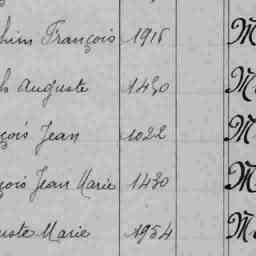 hin François 1916 M
h Auguste 1430 M
çois Jean 1022 M
çois Jean Marie 1430 M
uste Marie 1954 M